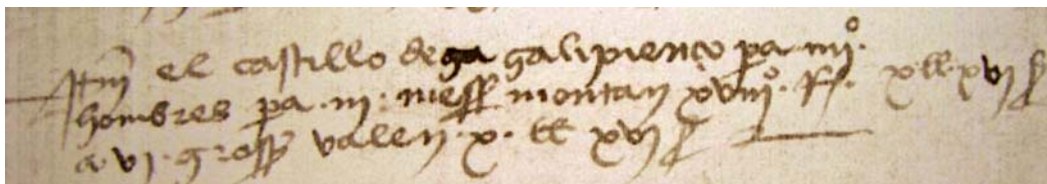 Itm el castillo de ga galipienço pa iiiiº.
hombres pa .iii. mess montan xviiiº. ff. x ll. xvi s
a. vi. gross valen .x. ll xvi s